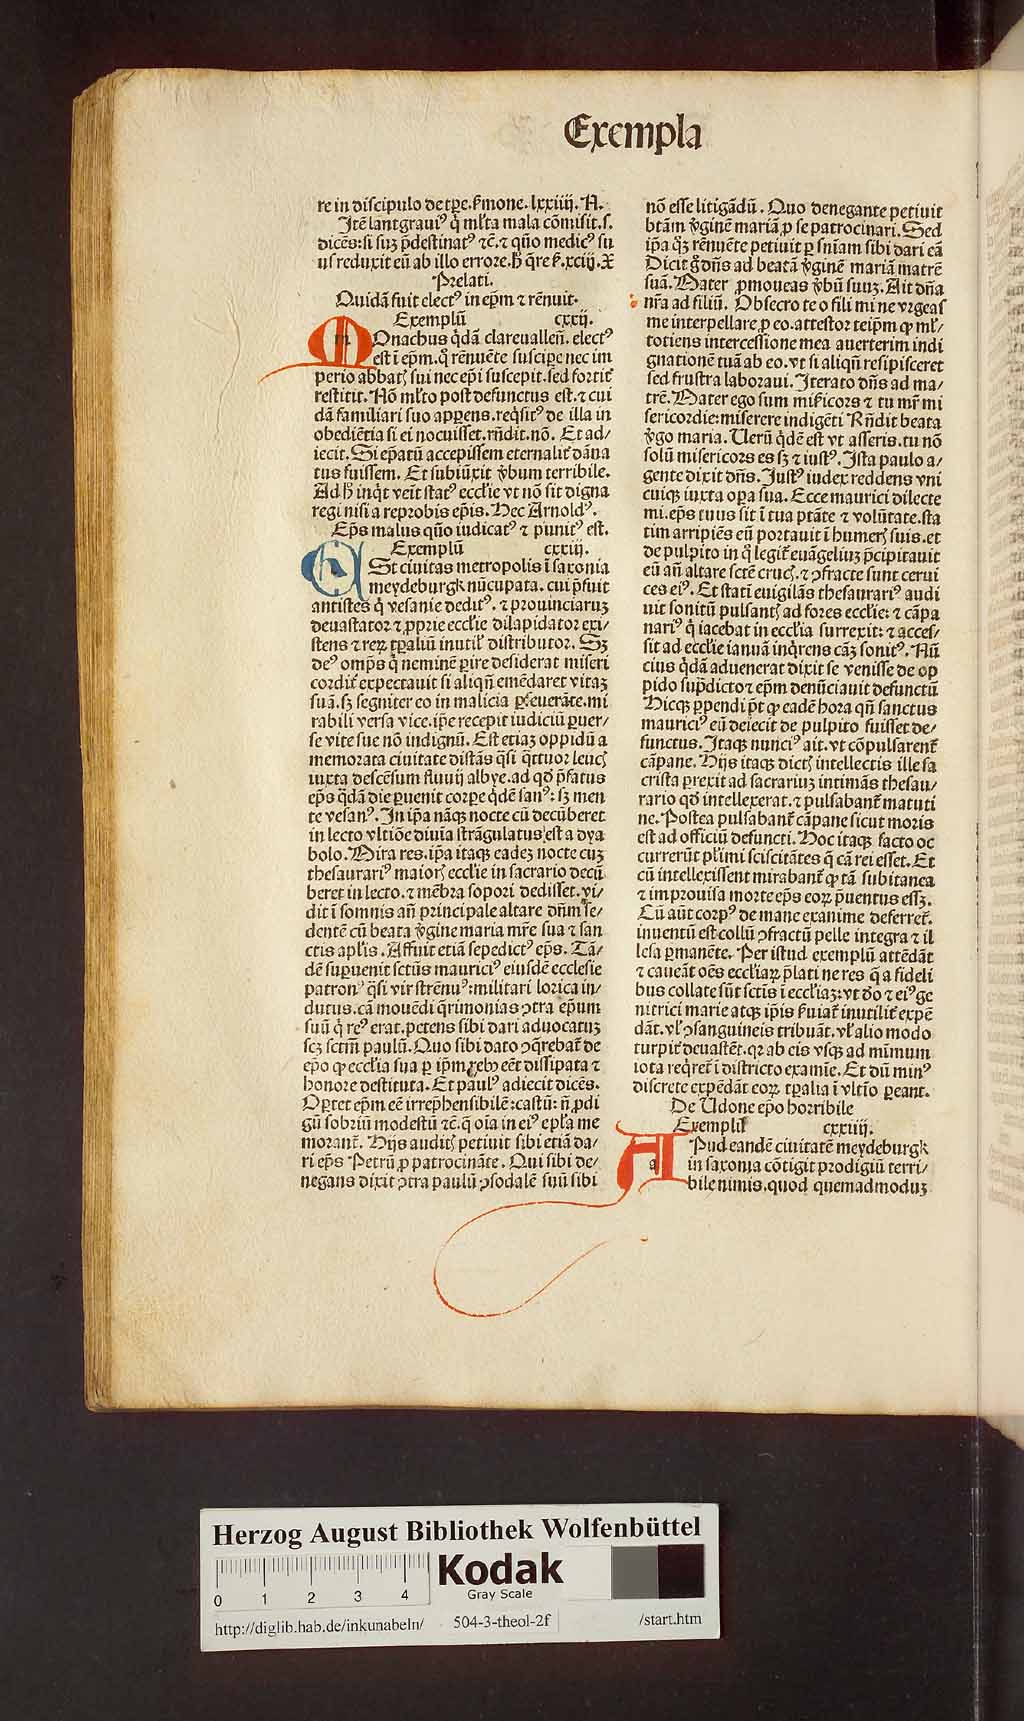 Exempla
re in discipulo de tp̄e. ẜmone. lxxiiij. A.
Itē lantgrauiꝰ q̇ ml̓ta mala cōmisit. s.
dicēs: si suꝫ p̄destinatꝰ ⁊c̄. ⁊ qūo medicꝰ su
us reduxit eū ab illo errore. h̓ q̄re ẜ. xciij. X
Prelati.
Quidā fuit electꝰ in ep̄m ⁊ rēnuit.
Exemplū cxxij.
MOnachus q̇dā clareualleñ. electꝰ
est ī ep̄m. q̇ rēnuēte suscipe nec im
perio abbatꝭ sui nec ep̄i suscepit. sed fortit̓
restitit. Nō ml̓to post defunctus est. ⁊ cui
dā familiari suo apparens. reqͥsitꝰ de illa in
obediētia si ei nocuisset. rn̄dit. nō. Et ad/
iecit. Si ep̄atū accepissem eternalit̓ dāna
tus fuissem. Et subiūxit v̓bum terribile.
Ad h̓ inqͥt veīt statꝰ eccl̓ie vt nō sit digna
regi nisi a reprobis ep̄is. Hec Arnoldꝰ.
Ep̄s malus qūo iudicatꝰ ⁊ punitꝰ est.
Exemplū cxxiij.
ESt ciuitas metropolis ī saxonia
meydeburgk nūcupata. cui p̄fuit
antistes q̇ vesanie deditꝰ. ⁊ prouinciaruꝫ
deuastator ⁊ ꝓprie eccl̓ie dilapidator exi/
stens ⁊ reꝝ tꝑaliū inutil̓ distributor. Sꝫ
deꝰ omp̄s q̇ neminē ꝑire desiderat miseri
cordit̓ expectauit si aliqn̄ emēdaret vitaꝫ
suā. sꝫ segniter eo in malicia ꝑseuerāte. mi
rabili versa vice. ip̄e recepit iudiciū ꝑuer/
se vite sue nō indignū. Est etiaꝫ oppidū a
memorata ciuitate distās qͣsi qͣttuor leucꝭ
iuxta descēsum fluuij albye. ad qd̓ p̄fatus
ep̄s q̇dā die ꝑuenit corꝑe q̇dē sanꝰ: sꝫ men
te vesanꝰ. In ip̄a nāqꝫ nocte cū decūberet
in lecto vltiōe diuīa strāgulatus est a dya
bolo. Mira res. ip̄a itaqꝫ eadeꝫ nocte cuꝫ
thesaurariꝰ maiorꝭ eccl̓ie in sacrario decū
beret in lecto. ⁊ mēbra sopori dedisset. vi/
dit ī somnis an̄ principale altare dn̄m se/
dentē cū beata v̓gine maria mr̄e sua ⁊ san
ctis apl̓is. Affuit etiā sepedictꝰ ep̄s. Tā/
dē suꝑuenit sctūs mauriciꝰ eiusdē ecclesie
patronꝰ qͣsi vir strēnuꝰ: militari lorica in/
dutus. cā mouēdi q̄rimonias ꝯtra ep̄um
suū q̇ reꝰ erat. petens sibi dari aduocatuꝫ
scꝫ sctm̄ paulū. Quo sibi dato ꝯq̄rebat̓ de
ep̄o ꝙ eccl̓ia sua ꝑ ip̄m rebꝰ eēt dissipata ⁊
honore destituta. Et paulꝰ adiecit dicēs.
Oꝑtet ep̄m eē irrep̄hensibilē: castū: n̄ ꝓdi
gū sobriū modestū ⁊c̄. q̄ oīa in eiꝰ epl̓a me
morant̓. Hijs auditꝭ petiuit sibi etiā da/
ri ep̄s Petrū ꝓ patrocināte. Qui sibi de/
negans dixit ꝯtra paulū ꝯsodalē suū sibi
nō esse litigādū. Quo denegante petiuit
btām v̓ginē mariā ꝓ se patrocinari. Sed
ip̄a qꝫ rēnuēte petiuit ꝑ sn̄iam sibi dari eā
Dicit g̊ dn̄s ad beatā v̓ginē mariā matrē
suā. Mater ꝓmoueas v̓bū suuꝫ. Ait dn̄a
nr̄a ad filiū. Obsecro te o fili mi ne vrgeas
me interpellare ꝓ eo. attestor teip̄m ꝙ ml̓/
totiens intercessione mea auerterim indi
gnationē tuā ab eo. vt si aliqn̄ resipisceret
sed frustra laboraui. Iterato dn̄s ad ma/
trē. Mater ego sum mis̓icors ⁊ tu mr̄ mi
sericordie: miserere indigēti Rn̄dit beata
v̓go maria. Verū q̇dē est vt asseris. tu nō
solū misericors es sꝫ ⁊ iustꝰ. Ista paulo a/
gente dixit dn̄s. Justꝰ iudex reddens vni
cuiqꝫ iuxta oꝑa sua. Ecce maurici dilecte
mi. ep̄s tuus sit ī tua ptāte ⁊ volūtate. sta
tim arripiēs eū portauit ī humerꝭ suis. et
de pulpito in q̊ legit̓ euāgeliuꝫ p̄cipitauit
eū an̄ altare sctē crucꝭ. ⁊ ꝯfracte sunt cerui
ces eiꝰ. Et stati euigilās thesaurariꝰ audi
uit sonitū pulsantꝭ ad fores eccl̓ie: ⁊ cāpa
nariꝰ q̇ iacebat in eccl̓ia surrexit: ⁊ acces/
sit ad eccl̓ie ianuā inq̇rens cāꝫ sonitꝰ. Nū
cius q̇dā aduenerat dixit se venisse de op
pido sup̄dicto ⁊ ep̄m denūciauit defunctū
Hicqꝫ ꝑpendi p̄t ꝙ eadē hora qn̄ sanctus
mauriciꝰ eū deiecit de pulpito fuisset de/
functus. Itaqꝫ nunciꝰ ait. vt cōpulsarent̓
cāpane. Hijs itaqꝫ dictꝭ intellectis ille sa
crista ꝑrexit ad sacrariuꝫ intimās thesau/
rario qd̓ intellexerat. ⁊ pulsabant̓ matuti
ne. Postea pulsabant̓ cāpane sicut moris
est ad officiū defuncti. Hoc itaqꝫ facto oc
currerūt pl̓imi sciscitātes q̄ cā rei esset. Et
cū intellexissent mirabant̓ ꝙ tā subitanea
⁊ improuisa morte ep̄s eoꝝ p̄uentus essꝫ.
Cū aūt corpꝰ de mane exanime deferret̓.
inuentū est collū ꝯfractū pelle integra ⁊ il
lesa ꝑmanēte. Per istud exemplū attēdāt
⁊ caueāt oēs eccl̓iaꝝ p̄lati ne res q̄ a fideli
bus collate sūt sctīs ī eccl̓iaꝫ: vt d̓o ⁊ eiꝰ ge
nitrici marie atqꝫ ip̄is ẜuiat̓ inutilit̓ expē
dāt. vl̓ ꝯsanguineis tribuāt. vl̓ alio modo
turpit̓ deuastēt. qꝛ ab eis vsqꝫ ad mīmum
iota req̇ret̓ ī districto examīe. Et dū minꝰ
discrete expēdāt eoꝝ tꝑalia ī vlt̓io ꝑeant.
De Udone ep̄o horribile
Exemplū cxxiiij.
APud eandē ciuitatē meydeburgk
in saxonia cōtigit prodigiū terri/
bile nimis. quod quemadmoduꝫ
Herzog August Bibliothek Wolfenbüttel
Kodak
Gray Scale
0 1 2 3 4
http://diglib.hab.de/inkunabeln/ 504-3-theol-2f /start.htm